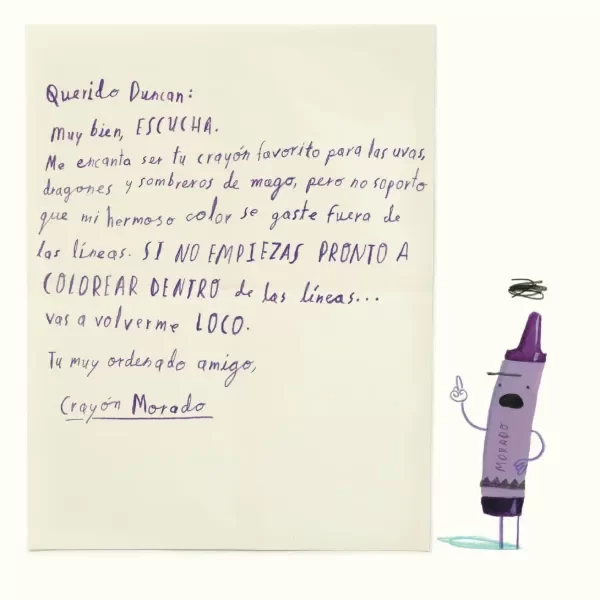 Querido Duncan:
Muy bien, ESCUCHA.
Me encanta ser tu crayón favorito para las uvas,
dragones y sombreros de mago, pero no soporto
que mi hermoso color se gaste fuera de
las líneas. SI NO EMPIEZAS PRONTO A
COLOREAR DENTRO de las líneas...
vas a volverme LOCO.
Tu muy ordenado amigo,
Crayón Morado
MORADO